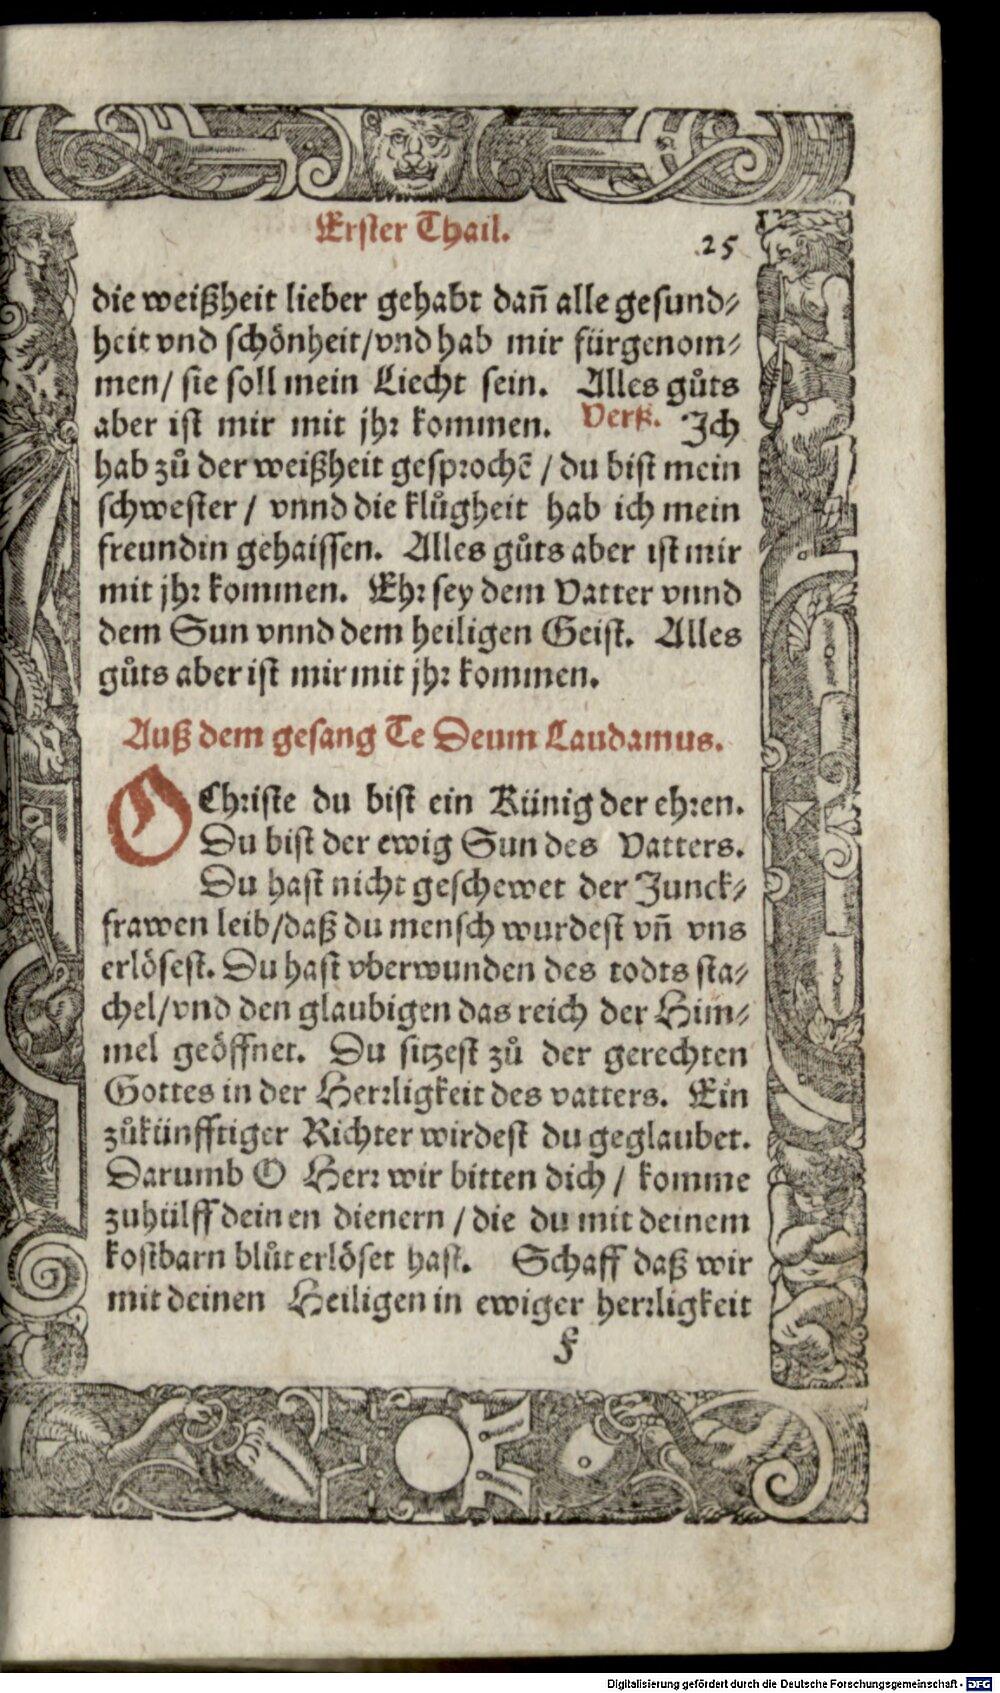 Erster Thail.
25
die weißheit lieber gehabt dañ alle gesund⸗
heit vnd schönheit/vnd hab mir fürgenom⸗
men/ sie soll mein Liecht sein. Alles gůts
aber ist mir mit jhr kommen. Verß. Jch
hab zů der weißheit gesprochẽ / du bist mein
schwester / vnnd die klůgheit hab ich mein
freundin gehaissen. Alles gůts aber ist mir
mit jhr kommen. Ehr sey dem Vatter vnnd
dem Sun vnnd dem heiligen Geist. Alles
gůts aber ist mir mit jhr kommen.
Auß dem gesang Te Deum Laudamus.
O Christe du bist ein Künig der ehren.
Du bist der ewig Sun des Vatters.
Du hast nicht geschewet der Junck⸗
frawen leib/daß du mensch wurdest vñ vns
erlösest. Du hast vberwunden des todts sta⸗
chel/vnd den glaubigen das reich der Him⸗
mel geöffnet. Du sitzest zů der gerechten
Gottes in der Herrligkeit des vatters. Ein
zůkünfftiger Richter wirdest du geglaubet.
Darumb O Herr wir bitten dich / komme
zuhülff deinen dienern / die du mit deinem
kostbarn blůt erlöset hast. Schaff daß wir
mit deinen Heiligen in ewiger herrligkeit
Digitalisierung gefördert durch die Deutsche Forschungsgemeinschaft - DFG